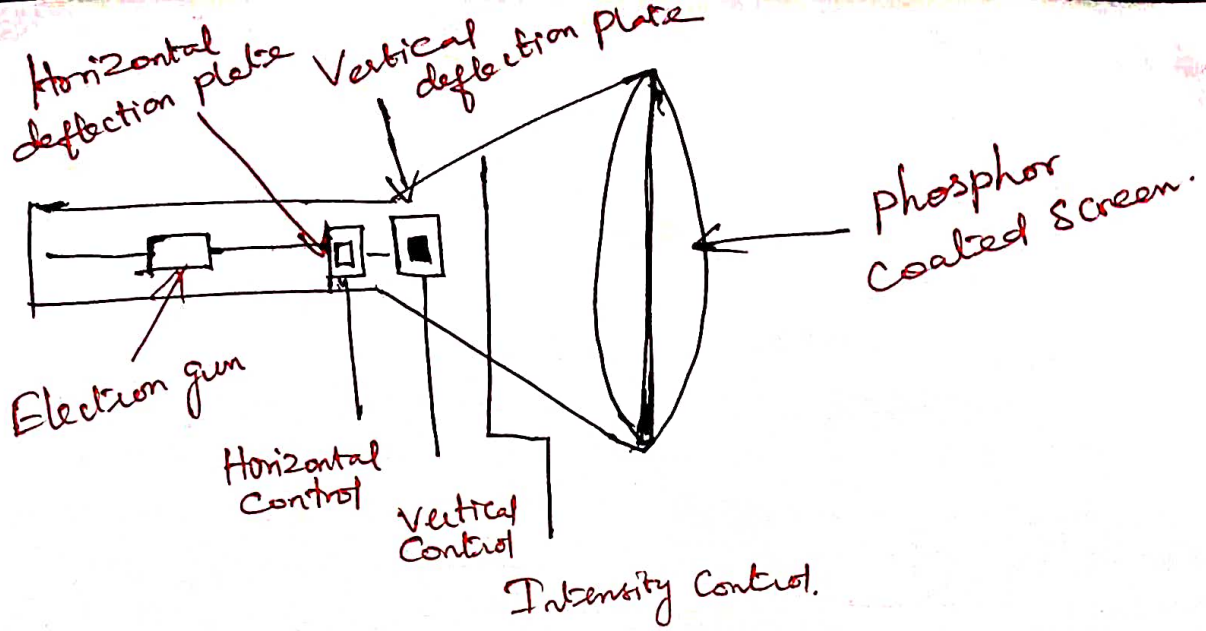 Horizontal
deflection plate
Vertical
deflection plate
phosphor
coated screen.
Electron gun
Horizontal
Control
Vertical
Control
Intensity Control.